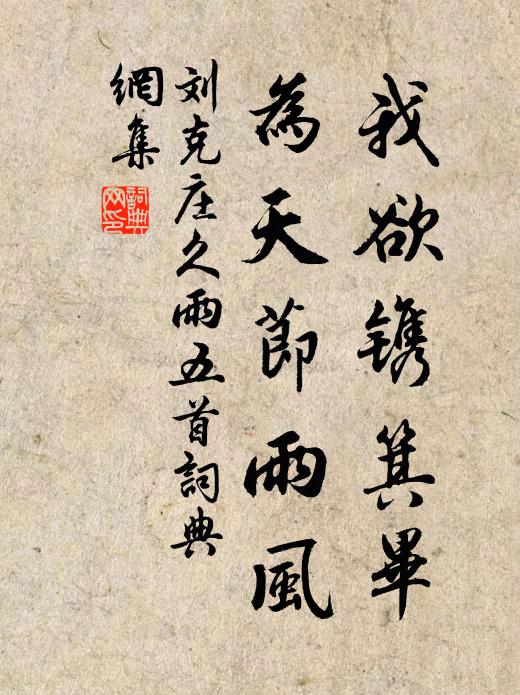 我欲镌箕畢
為天節雨風
刘克庄久雨五首詞典
網集
詞典
网印